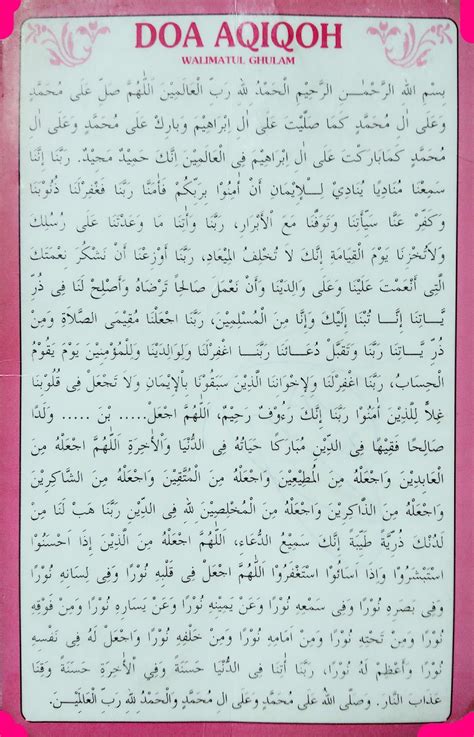 DOA AQIQOH
WALIMATUL GHULAM
بِسْمِ اللهِ الرَّحْمٰنِ الرَّحِيْمِ الْحَمْدُ لِلّٰهِ رَبِّ الْعَالَمِيْنَ اَللّٰهُمَّ صَلِّ عَلَى مُحَمَّدٍ
وَعَلَى اٰلِ مُحَمَّدٍ كَمَا صَلَّيْتَ عَلَى اٰلِ اِبْرَاهِيْمَ وَبَارِكْ عَلَى مُحَمَّدٍ وَعَلَى اٰلِ
مُحَمَّدٍ كَمَابَارَكْتَ عَلَى اٰلِ اِبْرَاهِيْمَ فِى الْعَالَمِيْنَ اِنَّكَ حَمِيْدٌ مَجِيْدٌ. رَبَّنَا اِنَّنَا
سَمِعْنَا مُنَادِيًا يُنَادِيْ لِلْاِيْمَانِ أَنْ اٰمِنُوْا بِرَبِّكُمْ فَأٰمَنَّا رَبَّنَا فَغْفِرْلَنَا ذُنُوْبَنَا
وَكَفِّرْ عَنَّا سَيِّأٰتِنَا وَتَوَفَّنَا مَعَ الْأَبْرَارِ، رَبَّنَا وَأٰتِنَا مَا وَعَدْتَنَا عَلَى رُسُلِكَ
وَلَاتُخْزِنَا يَوْمَ الْقِيَامَةِ اِنَّكَ لَا تُخْلِفُ الْمِيْعَادِ، رَبَّنَا أَوْزِعْنَا أَنْ نَشْكُرَ نِعْمَتَكَ
الَّتِى أَنْعَمْتَ عَلَيْنَا وَعَلَى وَالِدَيْنَا وَأَنْ نَعْمَلَ صَالِحًا تَرْضَاهُ وَأَصْلِحْ لَنَا فِى ذُرِّ
يَّاتِنَا اِنَّا تُبْنَا اِلَيْكَ وَاِنَّا مِنَ الْمُسْلِمِيْنَ، رَبَّنَا اجْعَلْنَا مُقِيْمَى الصَّلَاةِ وَمِنْ
ذُرِّ يَّاتِنَا رَبَّنَا وَتَقَبَّلْ دُعَائَنَا رَبَّنَا اغْفِرْلَنَا وَلِوَالِدَيْنَا وَلِلْمُؤْمِنِيْنَ يَوْمَ يَقُوْمُ
الْحِسَابُ، رَبَّنَا اغْفِرْلَنَا وَلِاِخْوَانِنَا الَّذِيْنَ سَبَقُوْنَا بِالْاِيْمَانِ وَلَا تَجْعَلْ فِى قُلُوْبِنَا
غِلًّا لِلَّذِيْنَ اٰمَنُوْا رَبَّنَا اِنَّكَ رَءُوْفٌ رَحِيْمٌ، اَللّٰهُمَّ اجْعَلْ..... بْنَ ..... وَلَدًا
صَالِحًا فَقِيْهًا فِى الدِّيْنِ مُبَارَكًا حَيَاتُهُ فِى الدُّنْيَا وَالْأٰخِرَةِ اَللّٰهُمَّ اجْعَلْهُ مِنَ
الْعَابِدِيْنَ وَاجْعَلْهُ مِنَ الْمُطِيْعِيْنَ وَاجْعَلْهُ مِنَ الْمُتَّقِيْنَ وَاجْعَلْهُ مِنَ الشَّاكِرِيْنَ
وَاجْعَلْهُ مِنَ الذَّاكِرِيْنَ وَاجْعَلْهُ مِنَ الْمُخْلِصِيْنَ لِلّٰهِ فِى الدِّيْنِ رَبَّنَا هَبْ لَنَا مِنْ
لَدُنْكَ ذُرِّيَةً طَيِّبَةً اِنَّكَ سَمِيْعُ الدُّعَاءِ، اَللّٰهُمَّ اجْعَلْهُ مِنَ الَّذِيْنَ اِذَا اَحْسَنُوْا
اسْتَبْشَرُوْا وَاِذَا اَسَائُوْا اسْتَغْفَرُوْا اَللّٰهُمَّ اجْعَلْ فِى قَلْبِهِ نُوْرًا وَفِى لِسَانِهِ نُوْرًا
وَفِى بَصَرِهِ نُوْرًا وَفِى سَمْعِهِ نُوْرًا وَعَنْ يَمِيْنِهِ نُوْرًا وَعَنْ يَسَارِهِ نُوْرًا وَمِنْ فَوْقِهِ
نُوْرًا وَمِنْ تَحْتِهِ نُوْرًا وَمِنْ اَمَامِهِ نُوْرًا وَمِنْ خَلْفِهِ نُوْرًا وَاجْعَلْ لَهُ فِى نَفْسِهِ
نُوْرًا وَأَعْظِمْ لَهُ نُوْرًا، رَبَّنَا اٰتِنَا فِى الدُّنْيَا حَسَنَةً وَفِى الْأٰخِرَةِ حَسَنَةً وَقِنَا
عَذَابَ النَّارِ. وَصَلَّى اللهُ عَلَى مُحَمَّدٍ وَعَلَى اٰلِ مُحَمَّدٍ وَالْحَمْدُ لِلّٰهِ رَبِّ الْعَالَمِيْنَ.